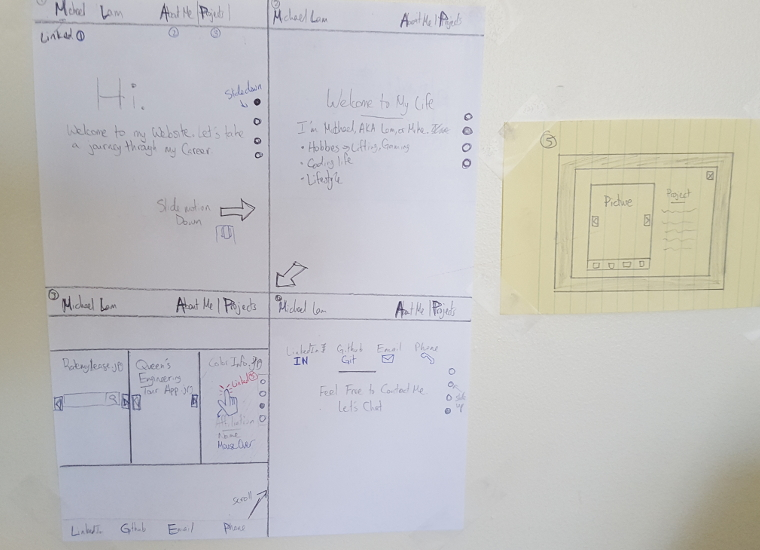 Michael Lam About Me | Projects |
Linked ①
② ③
Hi.
Slide down
Welcome to my Website. Let's take
a journey through my Career
Slide motion
Down
②
Michael Lam About Me | Projects
Welcome to My Life
I'm Michael, AKA Lam, or Mike
• Hobbies eg Lifting, Gaming
• Coding life
• Lifestyle
③
Michael Lam About Me | Projects
Queen's
Engineering
Tour App.jpg
Color Info.jpg
Linked
Name
Mouse Over
scroll
LinkedIn Github Email Phone
Michael Lam About Me | Projects
LinkedIn Github Email Phone
IN Git
Feel Free to Contact Me
Let's Chat
Slide
up
⑤
Picture
Project